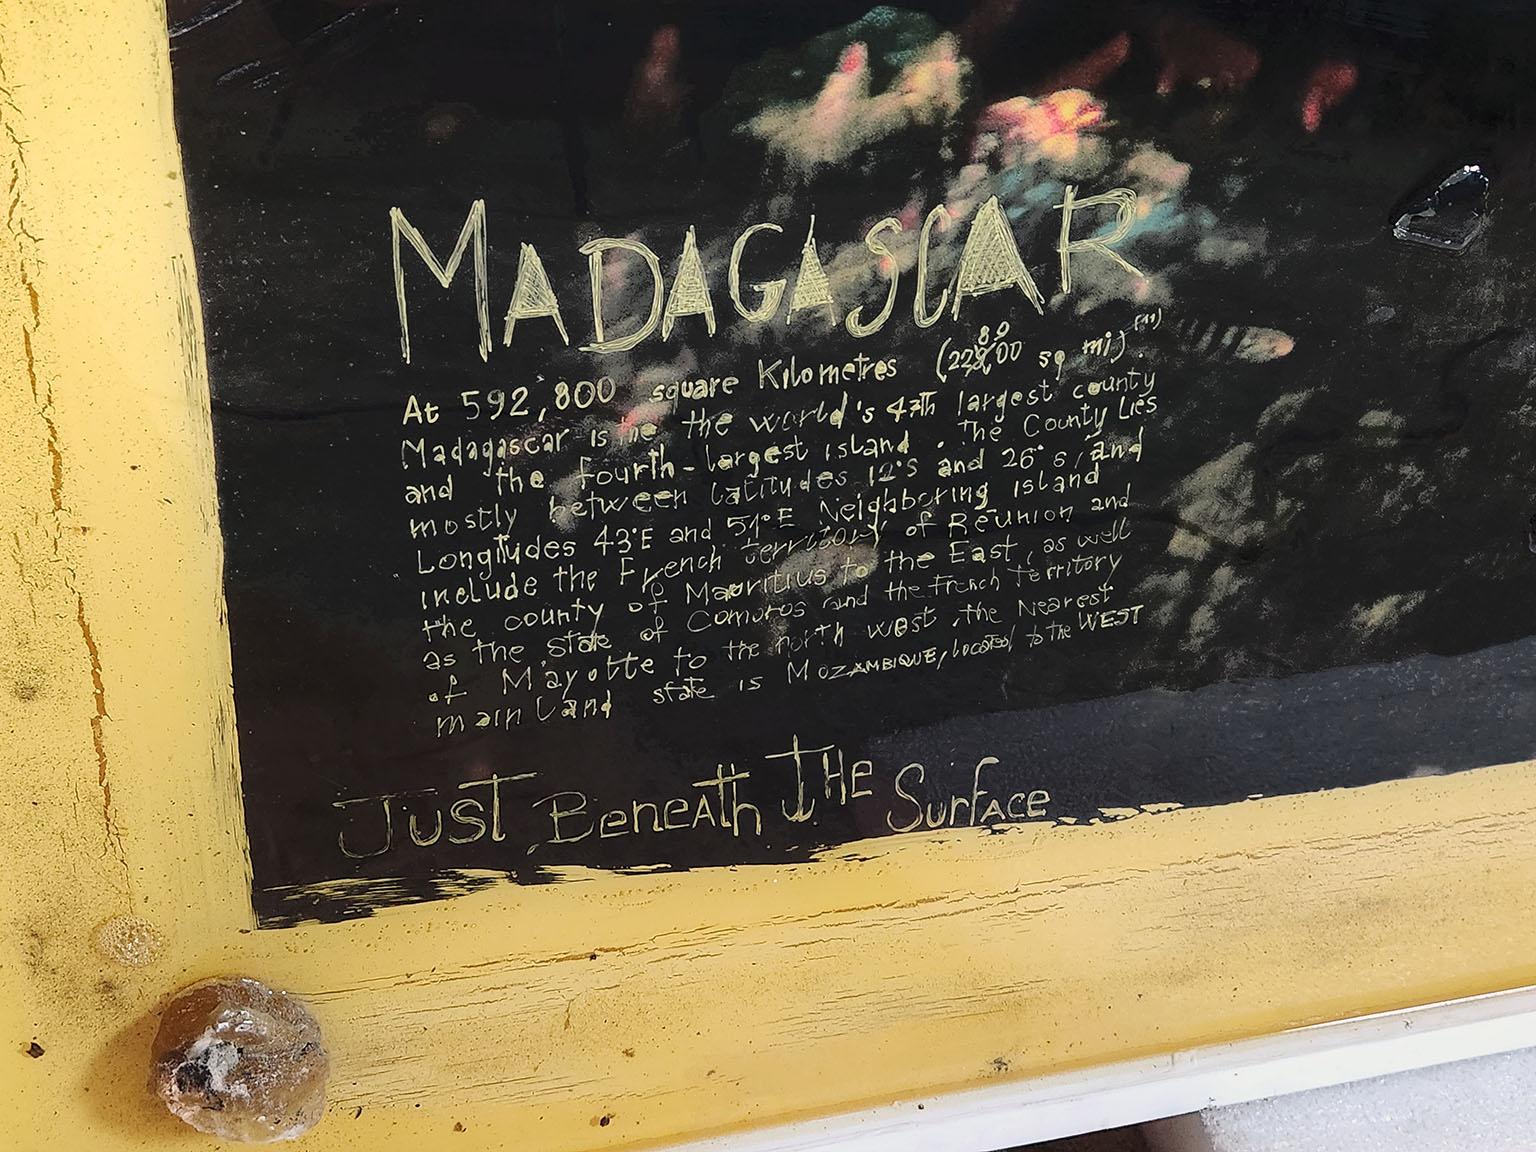 MADAGASCAR
At 592,800 square Kilometres (228,800 sq mi) [11].
Madagascar is the the world's 47th largest county
and the fourth-largest island. The County Lies
mostly between latitudes 12°S and 26°S, and
Longitudes 43°E and 51°E Neighboring island
include the French territory of Réunion and
the county of Mauritius to the East, as well
as the state of Comoros and the French Territory
of Mayotte to the north west. the Nearest
mainland state is MOZAMBIQUE, located to the WEST
JUST BENEATH THE SURFACE